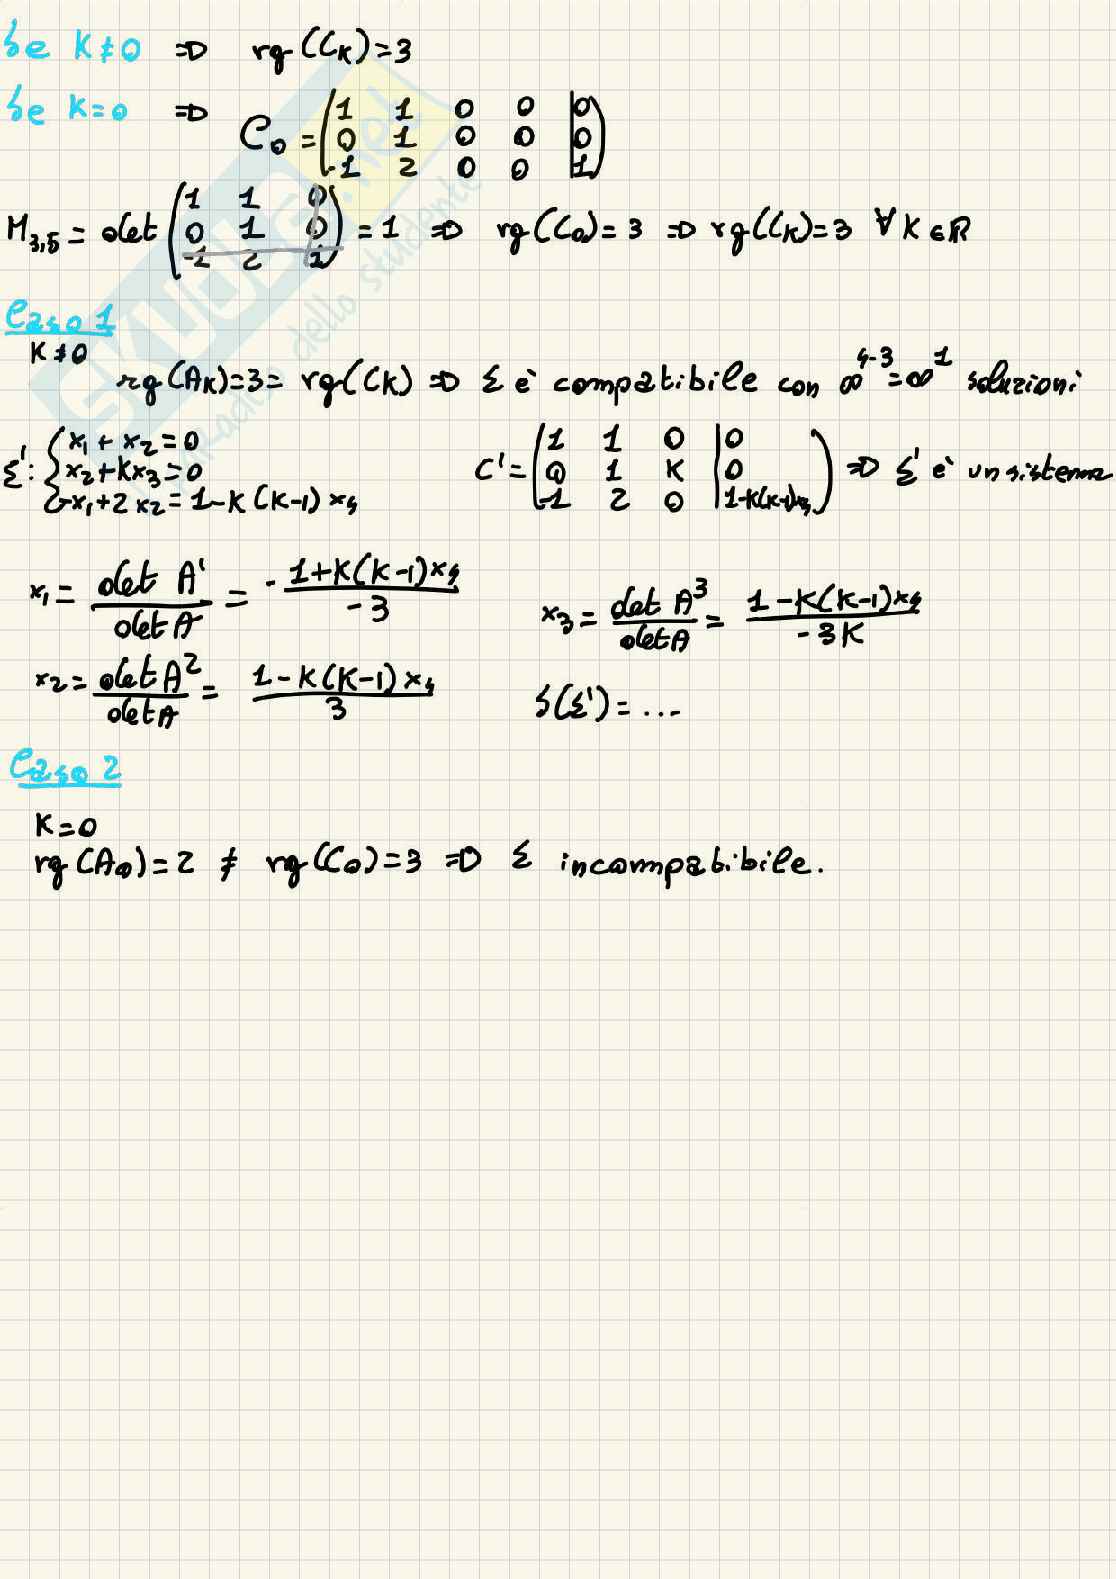 Se K≠0 ⇒ rg(C_K)=3
Se K=0 ⇒ C_0 = (1 1 0 0 | 0
0 1 0 0 | 0
-1 2 0 0 | 1)
M_{3,5} = det (1 1 0
0 1 0
-1 2 1) = 1 ⇒ rg(C_0)=3 ⇒ rg(C_K)=3 ∀ K∈R
Caso 1
K≠0
rg(A_K)=3= rg(C_K) ⇒ Σ è compatibile con ∞^{4-3}=∞^1 soluzioni
Σ': { x_1 + x_2 = 0
x_2 + K x_3 = 0
-x_1 + 2 x_2 = 1-K(K-1) x_4
C' = (1 1 0 | 0
0 1 K | 0
-1 2 0 | 1-K(K-1)x_4) ⇒ Σ' è un sistema
x_1 = det A' / det A = - 1+K(K-1)x_4 / -3
x_3 = det A^3 / det A = 1-K(K-1)x_4 / -3K
x_2 = det A^2 / det A = 1-K(K-1)x_4 / 3
S(Σ') = ...
Caso 2
K=0
rg(A_0)=2 ≠ rg(C_0)=3 ⇒ Σ incompatibile.
SKUOLA.net
dello studente